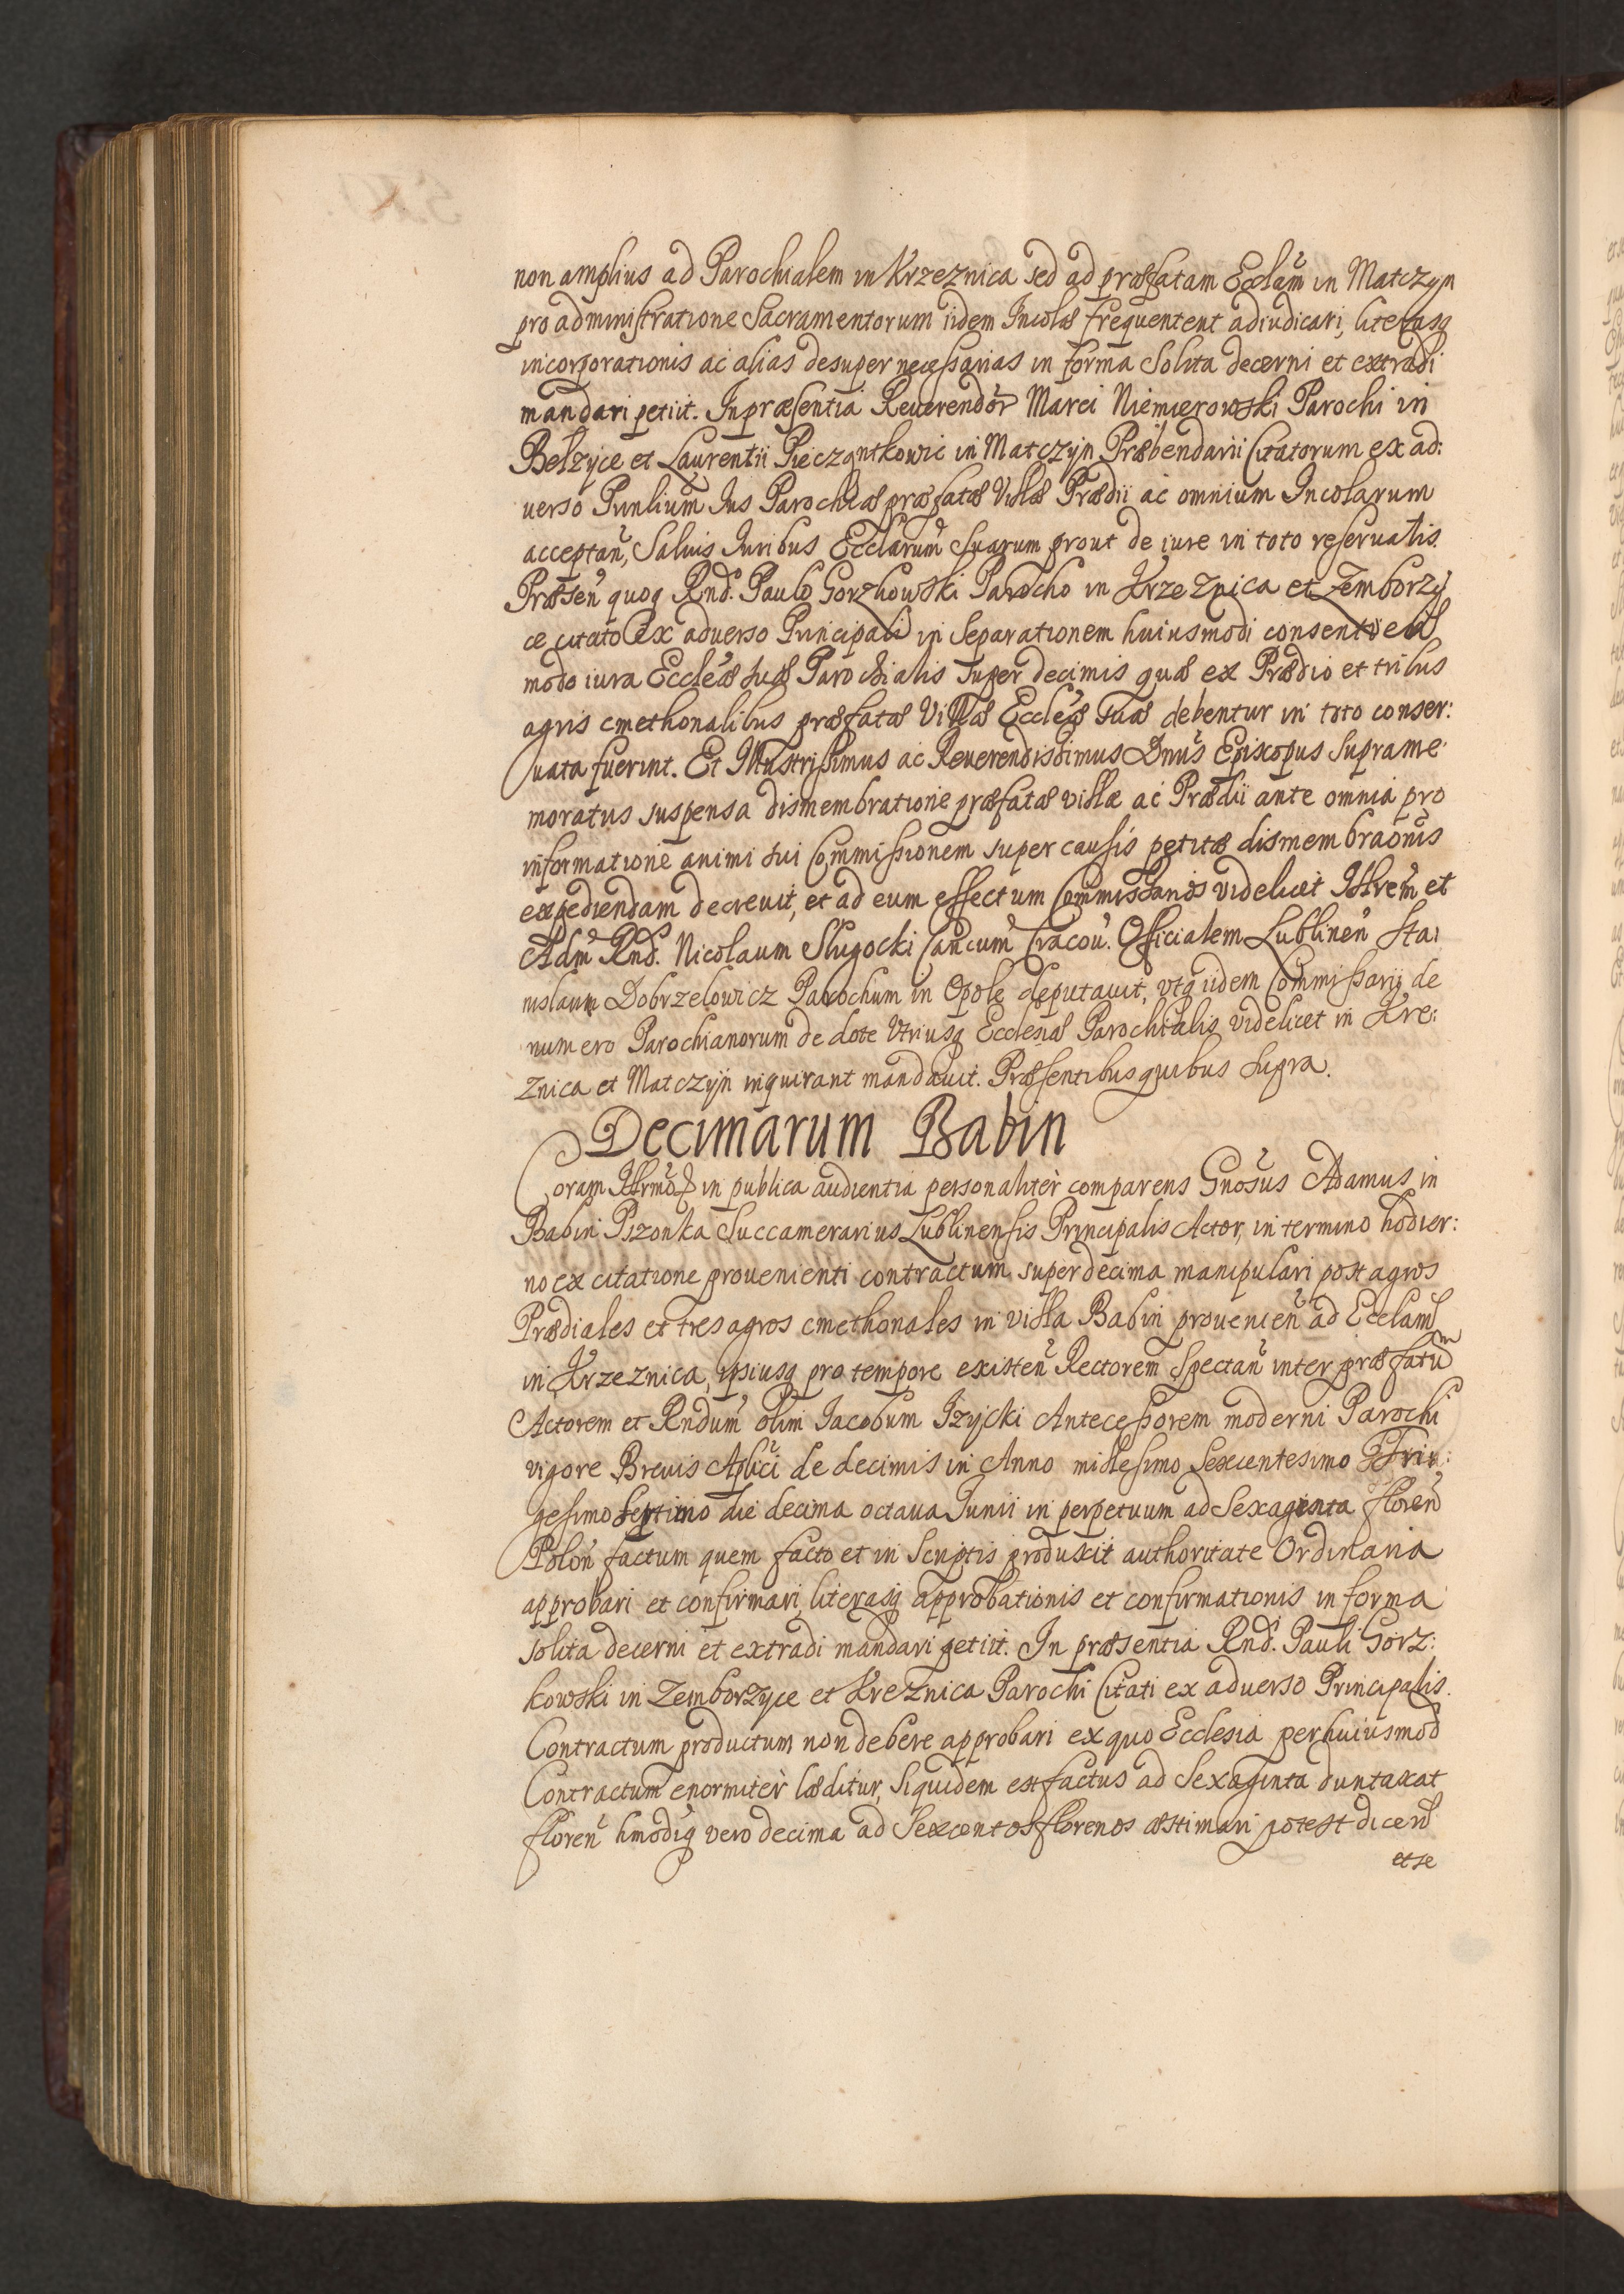 non amplius ad Parochialem in Krzeznica sed ad præfatam Ecclãm in Matczyn
pro administratione Sacramentorum iidem Incolæ frequentent adiudicari, literasq
incorporationis ac alias desuper necessarias in forma Solita decerni et extradi
mandari petiit. In præsentia Reuerendor Marci Niemierowski Parochi in
Belzyce et Laurentii Pieczantkowic in Matczyn Præbendarii Citatorum ex ad:
uerso Prinlium Ius Parochiæ præfatæ Villæ Prædii ac omnium Incolarum
acceptan, Saluis Iuribus Ecclarum Suarum prout de iure in toto reseruatis.
Præsen quoq Rnd. Paulo Gorzkowski Parocho in Krzeznica et Zemborzy
ce citato Ex aduerso Principali in Separationem huiusmodi consentien
modo iura Eccleæ suæ Parochialis super decimis quæ ex Prædio et tribus
agris cmethonalibus præfatæ Villæ Eccleæ suæ debentur in toto conser:
uata fuerint. Et Illustrissimus ac Reuerendissimus Dnus Episcopus supra me
moratus suspensa dismembratione præfatæ villæ ac Prædii ante omnia pro
informatione animi sui Commissionem super causis petitæ dismembraonis
expediendam decreuit, et ad eum effectum Commissarios videlicet Illrem et
Adm Rnd. Nicolaum Slugocki Cancum Cracou. Officialem Lublinen Sta
nislaum Dobrzelowicz Parochum in Opole deputauit, vtq iidem Commissarij de
numero Parochianorum de dote Vtriusq Ecclesiæ Parochialis videlicet in Kre:
znica et Matczyn inquirant mandauit. Præsentibus quibus supra.
Decimarum Babin
Coram Illrmo in publica audientia personaliter comparens Gnosus Adamus in
Babin Pszonka Succamerarius Lublinensis Principalis Actor, in termino hodier:
no ex citatione prouenienti contractum super decima manipulari post agros
Prædiales et tres agros cmethonales in villa Babin prouenien ad Ecclam
in Krzeznica, ipsiusq pro tempore existen Rectorem Spectan inter præfatum
Actorem et Rndum olim Iacobum Izycki Antecessorem moderni Parochi
vigore Breuis Aplici de decimis in Anno millesimo Sexcentesimo Trin:
gesimo septimo die decima octaua Iunii in perpetuum ad Sexaginta floren
Polon factum quem facto et in Scriptis produxit authoritate Ordinaria
approbari et confirmari, literasq approbationis et confirmationis in forma
solita decerni et extradi mandari petiit. In præsentia Rnd. Pauli Gorz:
kowski in Zemborzyce et Kreznica Parochi Citati ex aduerso Principalis.
Contractum productum non debere approbari ex quo Ecclesia per huiusmod
Contractum enormiter læditur, siquidem est factus ad Sexaginta duntaxat
floren hmodiq vero decima ad Sexcentos florenos æstimari potest dicen
et se